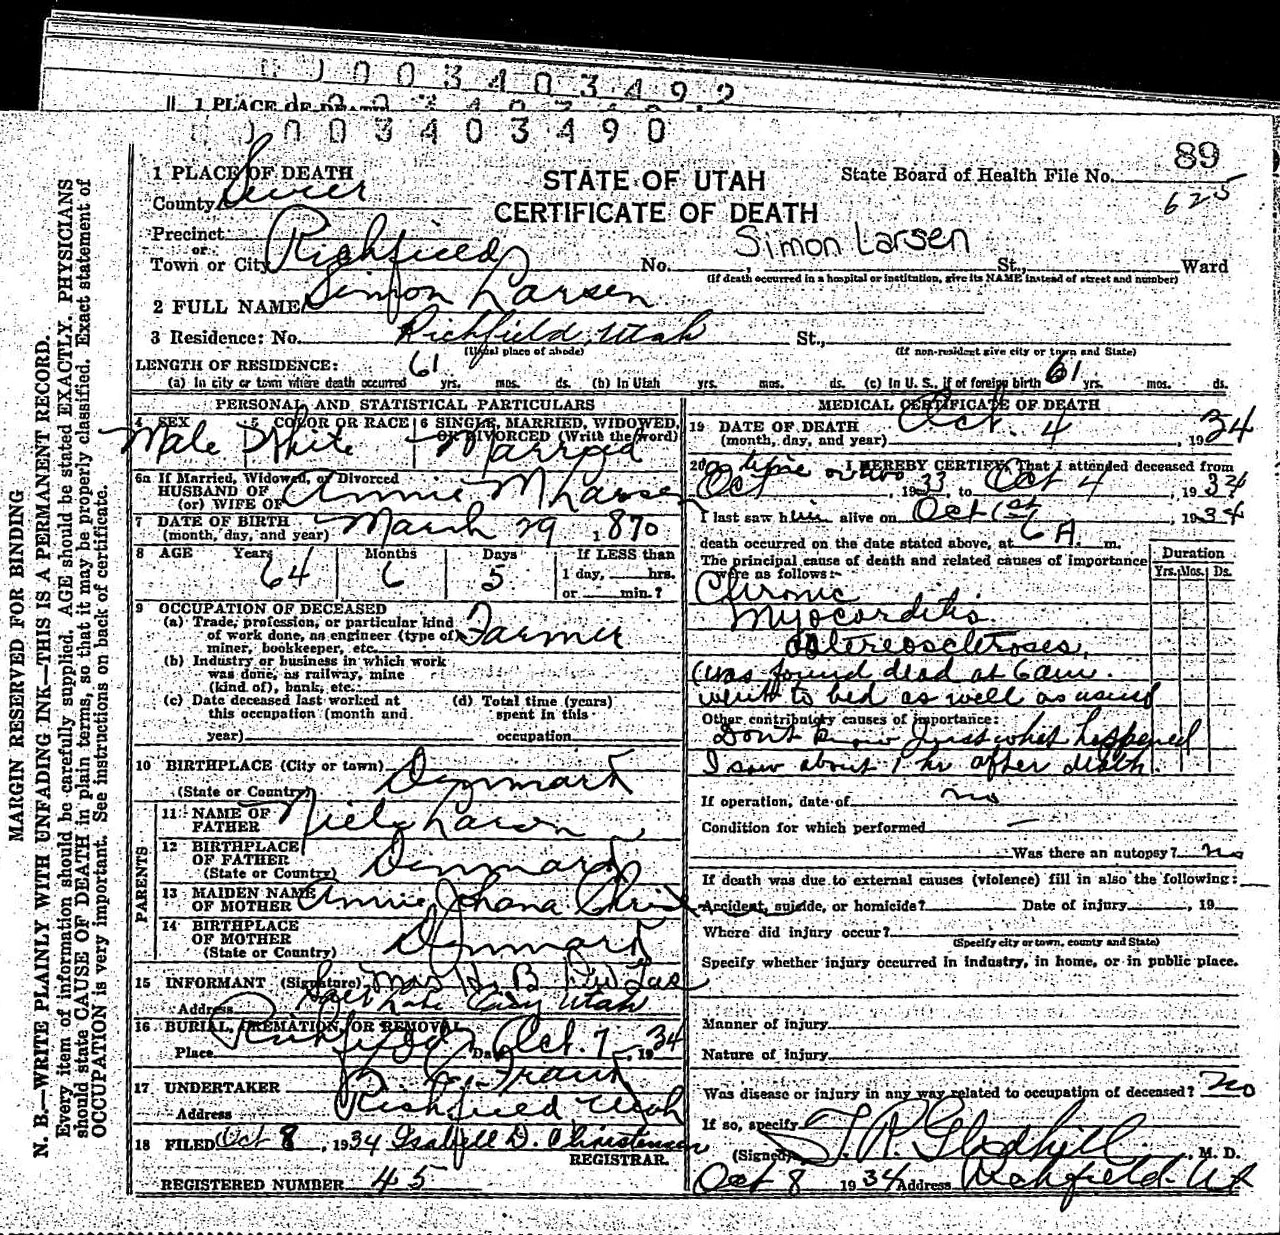 0003403492
1 PLACE OF DEATH
0003403490
89
1 PLACE OF DEATH
STATE OF UTAH
State Board of Health File No.
625
County Sevier
CERTIFICATE OF DEATH
Precinct
or
Simon Larsen
Town or City Richfield No. St., Ward
(If death occurred in a hospital or institution, give its NAME instead of street and number)
2 FULL NAME Simon Larsen
3 Residence: No. Richfield, Utah St.,
(Usual place of abode) (If non-resident give city or town and State)
LENGTH OF RESIDENCE:
(a) In city or town where death occurred 61 yrs. mos. ds. (b) In Utah yrs. mos. ds. (c) In U. S., if of foreign birth 61 yrs. mos. ds.
PERSONAL AND STATISTICAL PARTICULARS
4 SEX 5 COLOR OR RACE 6 SINGLE, MARRIED, WIDOWED,
OR DIVORCED (Write the word)
Male White Married
6a If Married, Widowed, or Divorced
HUSBAND OF Annie M Larsen
(or) WIFE OF
7 DATE OF BIRTH March 29 1870
(month, day, and year)
8 AGE Years Months Days If LESS than
64 6 5 1 day, hrs.
or min.?
9 OCCUPATION OF DECEASED
(a) Trade, profession, or particular kind
of work done, as engineer (type of) Farmer
miner, bookkeeper, etc.
(b) Industry or business in which work
was done, as railway, mine
(kind of), bank, etc.
(c) Date deceased last worked at (d) Total time (years)
this occupation (month and spent in this
year) occupation
10 BIRTHPLACE (City or town) Denmark
(State or Country)
PARENTS
11 NAME OF
FATHER Niels Larson
12 BIRTHPLACE
OF FATHER Denmark
(State or Country)
13 MAIDEN NAME
OF MOTHER Annie Johana
14 BIRTHPLACE
OF MOTHER Denmark
(State or Country)
15 INFORMANT (Signature) Mrs H. B
Address Salt Lake City Utah
16 BURIAL, CREMATION, OR REMOVAL
Place Richfield Date Oct. 7, 1934
17 UNDERTAKER
Address Richfield Utah
18 FILED Oct 8, 1934 Isabell D. Christensen
REGISTRAR.
REGISTERED NUMBER 45
MEDICAL CERTIFICATE OF DEATH
19 DATE OF DEATH Oct. 4, 1934
(month, day, and year)
20 I HEREBY CERTIFY, That I attended deceased from
time or two
Oct, 1933, to Oct 4, 1934
I last saw him alive on Oct 1st, 1934
death occurred on the date stated above, at 6 A. m.
The principal cause of death and related causes of importance
were as follows:
Duration
Yrs. Mos. Ds.
Chronic
Myocarditis
Was found dead at 6 am.
went to bed as well as usual
Other contributory causes of importance:
Don't know just what happened
I saw about 1 hr after death.
If operation, date of no
Condition for which performed —
Was there an autopsy? no
If death was due to external causes (violence) fill in also the following:
Accident, suicide, or homicide? Date of injury, 19
Where did injury occur?
(Specify city or town, county and State)
Specify whether injury occurred in industry, in home, or in public place.
Manner of injury
Nature of injury
Was disease or injury in any way related to occupation of deceased? no
If so, specify
(Signed) T. R. Gledhill, M. D.
Oct 8 1934 Address Richfield. Ut
MARGIN RESERVED FOR BINDING
N. B.—WRITE PLAINLY WITH UNFADING INK—THIS IS A PERMANENT RECORD.
Every item of information should be carefully supplied. AGE should be stated EXACTLY. PHYSICIANS
should state CAUSE OF DEATH in plain terms, so that it may be properly classified. Exact statement of
OCCUPATION is very important. See instructions on back of certificate.